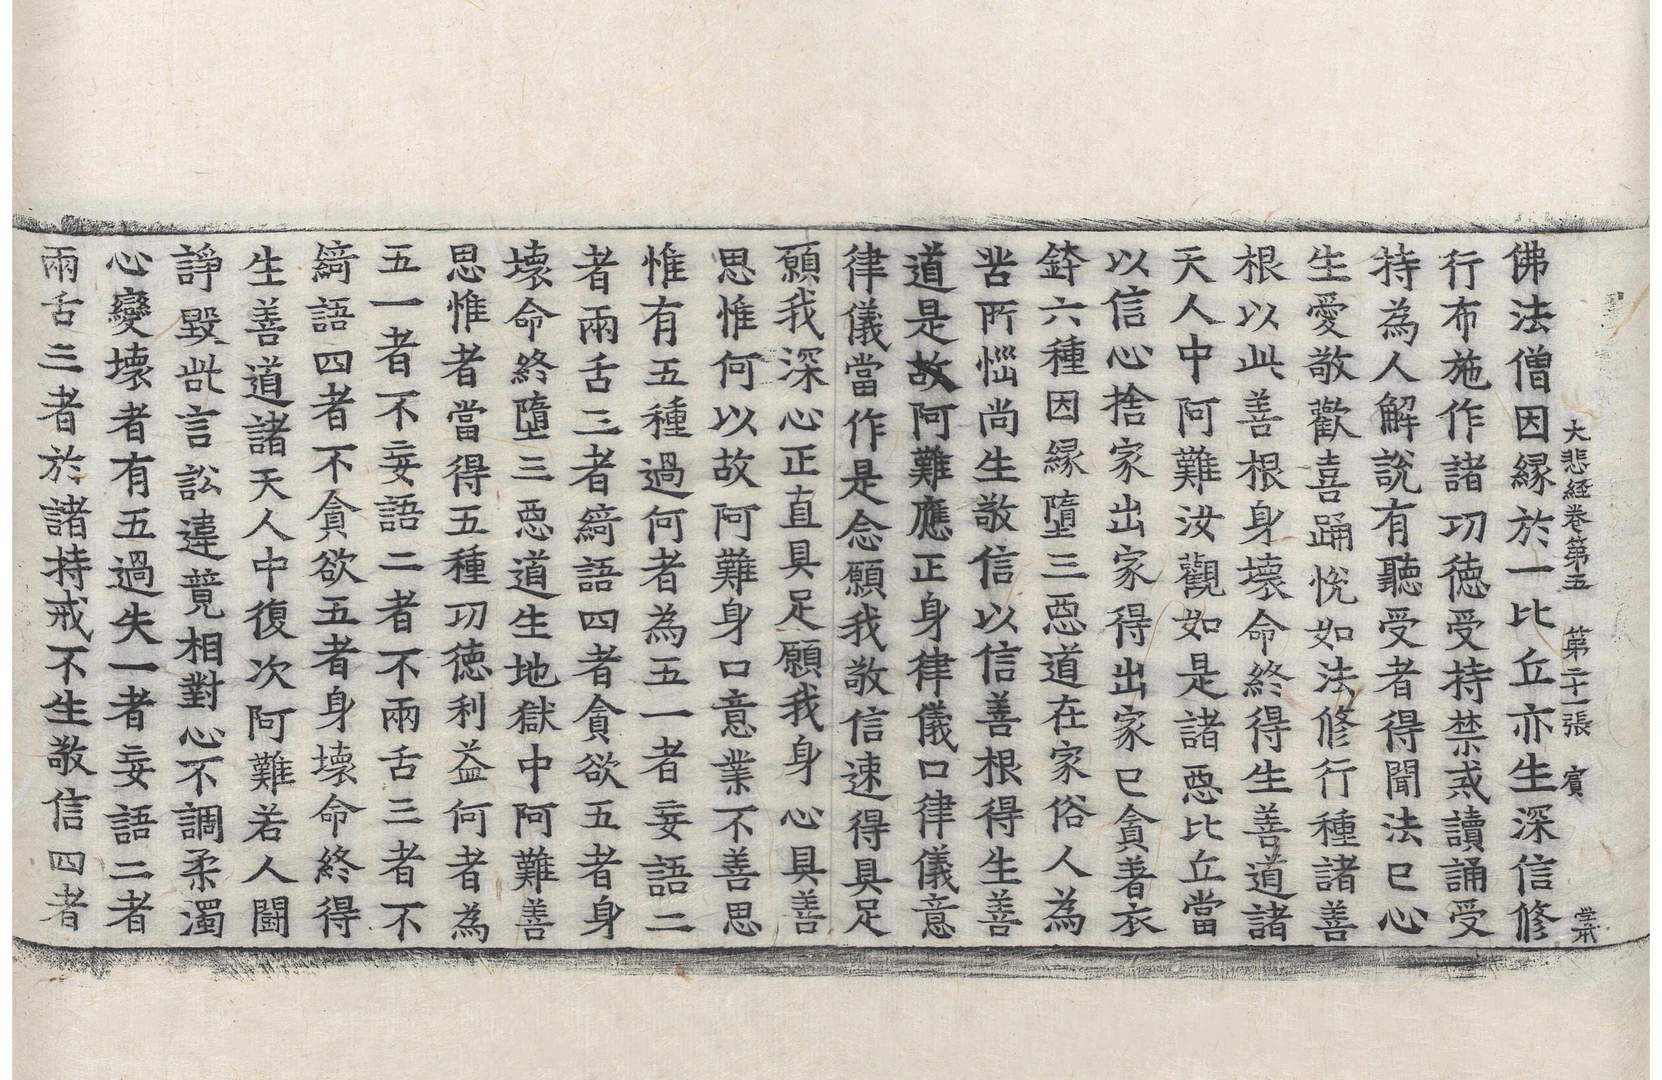 大悲経卷第五 第二十一張 賓
佛法僧因縁於一比丘亦生深信修
行布施作諸功徳受持禁戒讀誦受
持為人解說有聽受者得聞法已心
生愛敬歡喜踊悅如法修行種諸善
根以此善根身壞命終得生善道諸
天人中阿難汝觀如是諸惡比丘當
以信心捨家出家得出家已貪著衣
鉢六種因縁墮三惡道在家俗人為
苦所惱尚生敬信以信善根得生善
道是故阿難應正身律儀口律儀意
律儀當作是念願我敬信速得具足
願我深心正直具足願我身心具善
思惟何以故阿難身口意業不善思
惟有五種過何者為五一者妄語二
者兩舌三者綺語四者貪欲五者身
壞命終墮三惡道生地獄中阿難善
思惟者當得五種功徳利益何者為
五一者不妄語二者不兩舌三者不
綺語四者不貪欲五者身壞命終得
生善道諸天人中復次阿難若人鬪
諍毀呰言訟違競相對心不調柔濁
心變壞者有五過失一者妄語二者
兩舌三者於諸持戒不生敬信四者